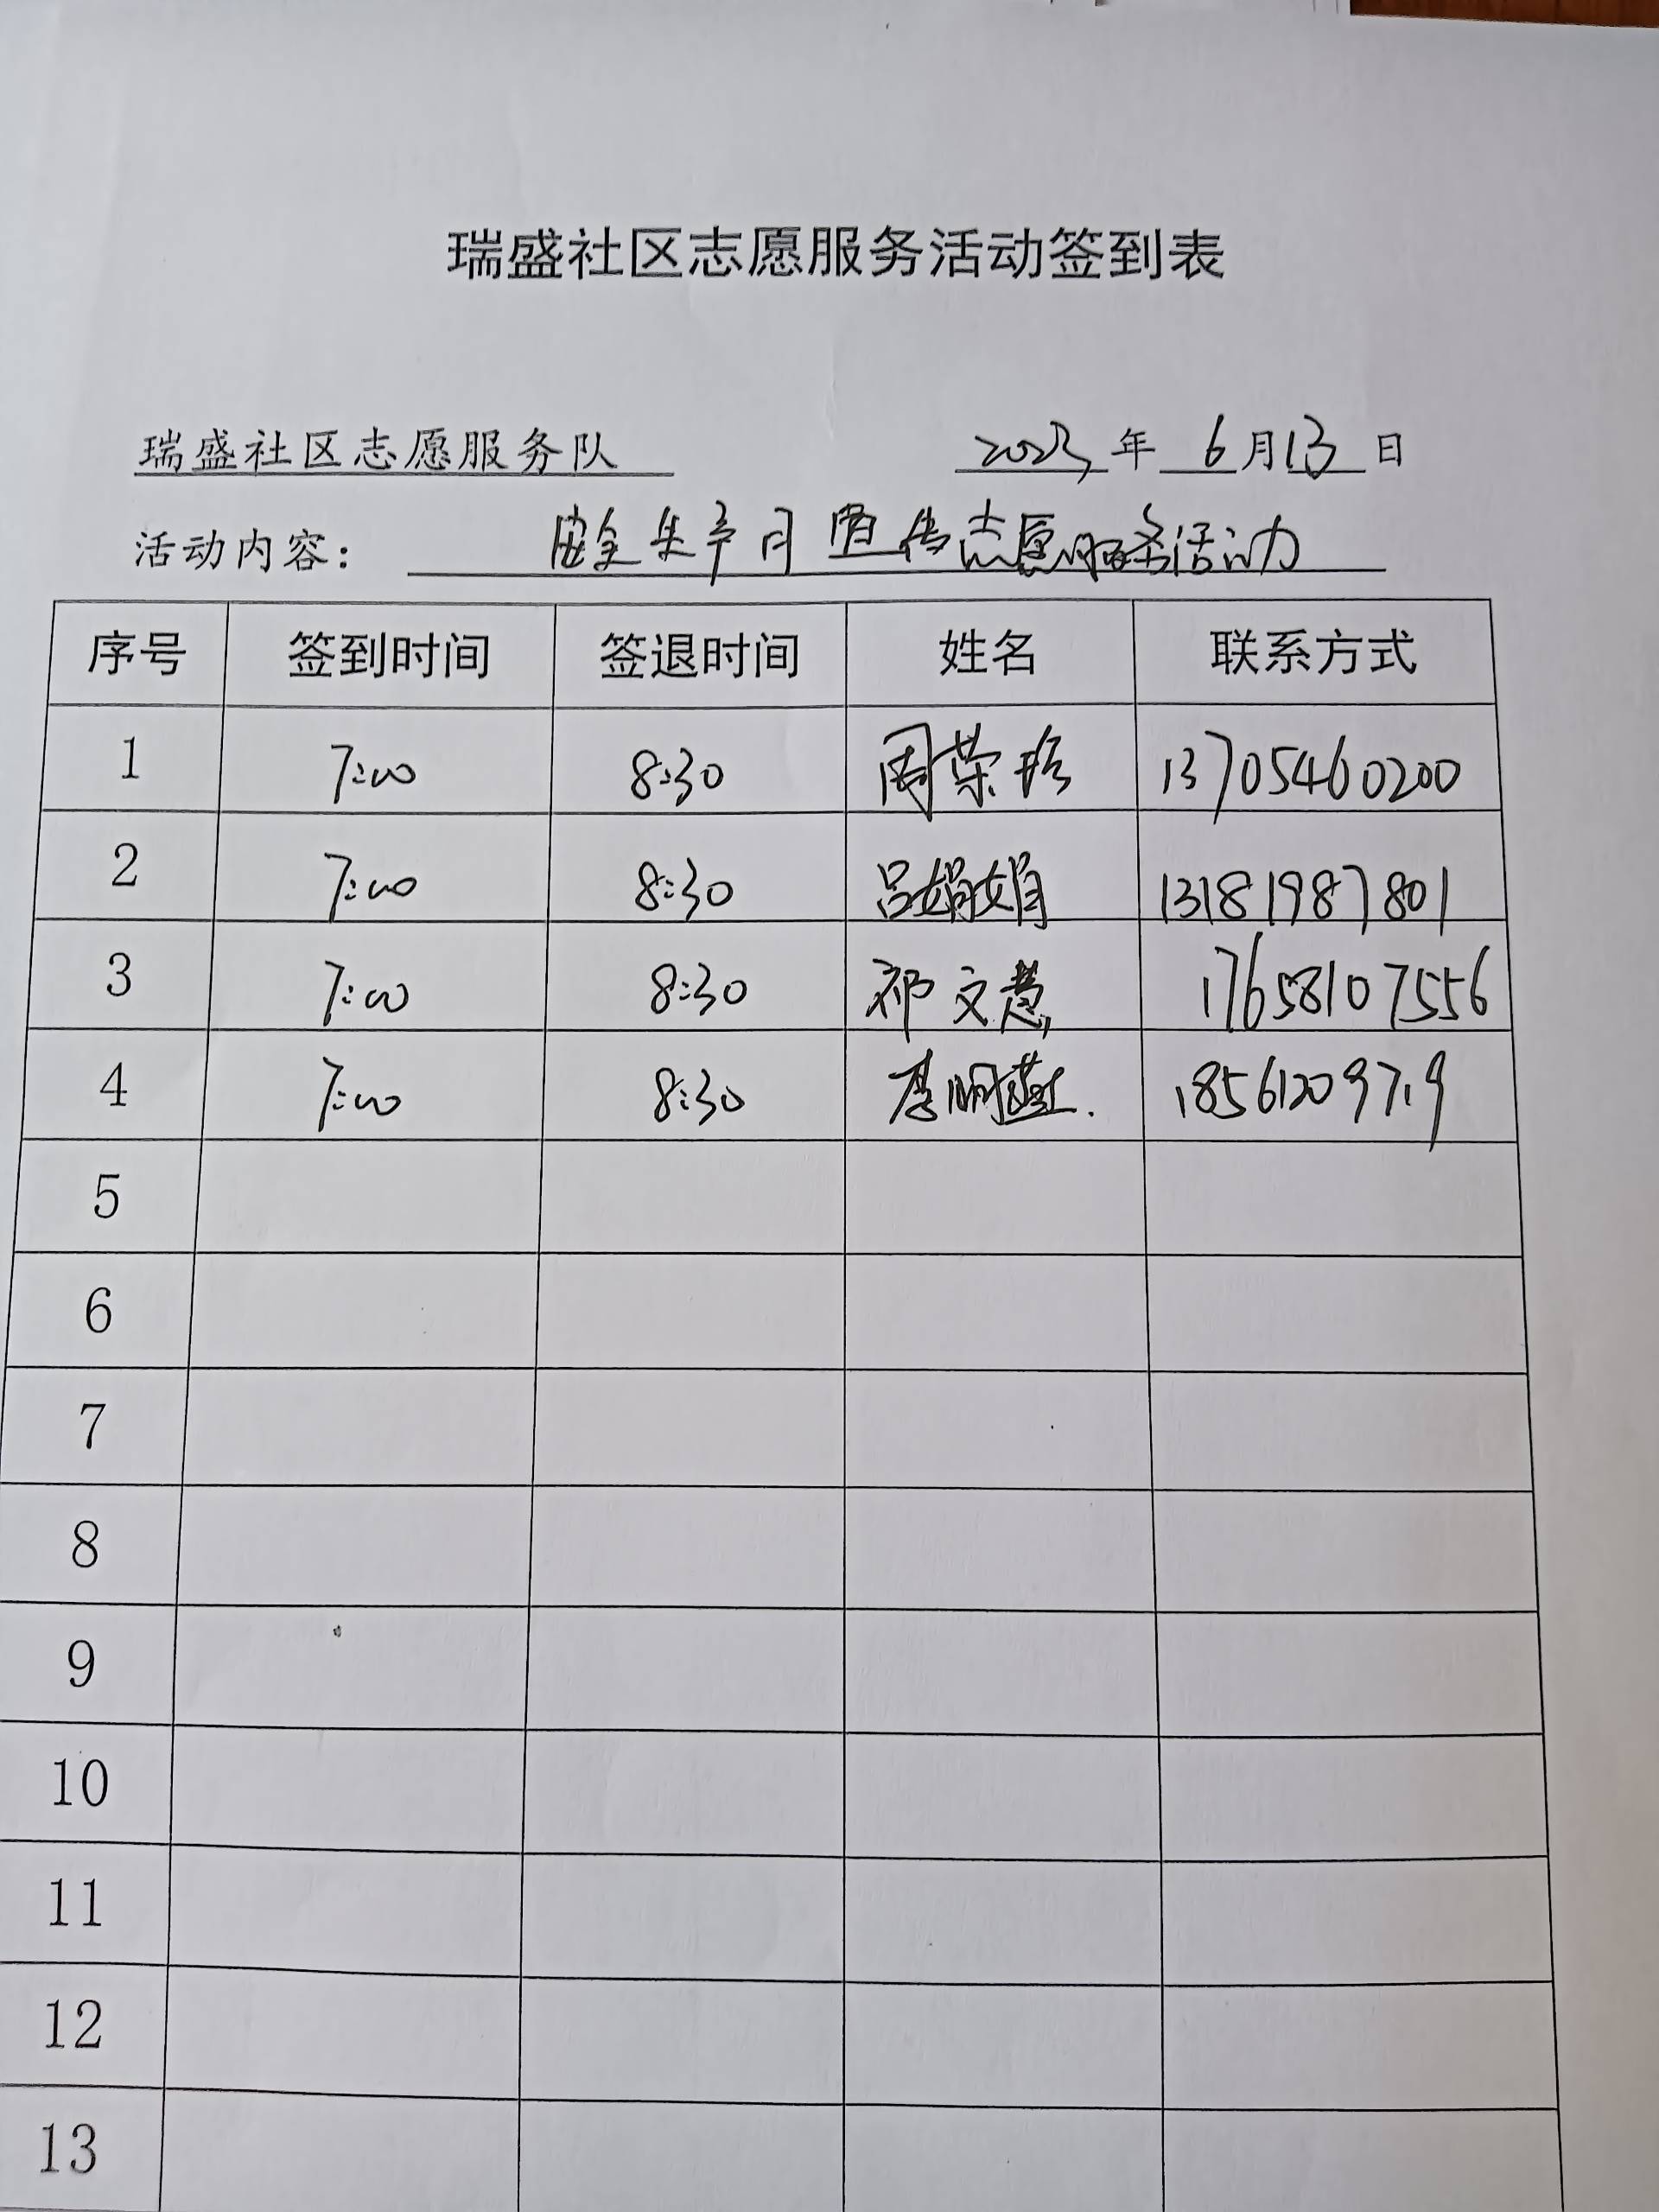 瑞盛社区志愿服务活动签到表
瑞盛社区志愿服务队 2023年 6月13日
活动内容： 安全生产月宣传志愿服务活动
序号 签到时间 签退时间 姓名 联系方式
1 7:00 8:30 周荣珍 13705460200
2 7:00 8:30 吕娟娟 13181987801
3 7:00 8:30 祁文慧 17658107556
4 7:00 8:30 李明燕 18561209719
5
6
7
8
9
10
11
12
13